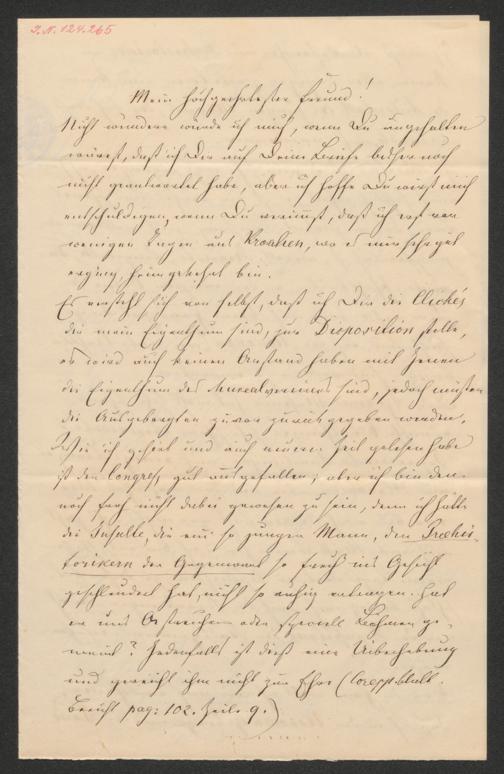 I.N. 124.265
Mein hochgeehrtester Freund!
Nicht wundern würde ich mich, wenn Du ungehalten
wärest, daß ich Dir auf Deine Briefe bisher noch
nicht geantwortet habe, aber ich hoffe Du wirst mich
entschuldigen, wenn Du vernimst, daß ich erst vor
wenigen Tagen aus Kroatien, wo es mir sehr gut
erging, heimgekehrt bin.
Es versteht sich von selbst, daß ich Dir die Clichés
die mein Eigenthum sind, zur Disposition stelle,
es wird auch keinen Anstand haben mit jenen
die Eigenthum des Musealvereines sind, jedoch müßten
die Ausgeborgten zuvor zurückgegeben werden.
Wie ich gehört und auch neuerer Zeit gelesen habe
ist der Congress gut ausgefallen; aber ich bin den-
noch froh nicht dabei gewesen zu sein, denn ich hätte
die Insulte, die ein so junger Mann, den Prähis-
torikern der Gegenwart so frech ins Gesicht
geschleudert hat, nicht so ruhig ertragen. Hat
er uns Östreicher oder speciell Böhmen ge-
meint? Jedenfalls ist dieß eine Ueberhebung
und gereicht ihm nicht zur Ehre (Corrspp. blatt
Bericht pag: 102. Zeile 9.)